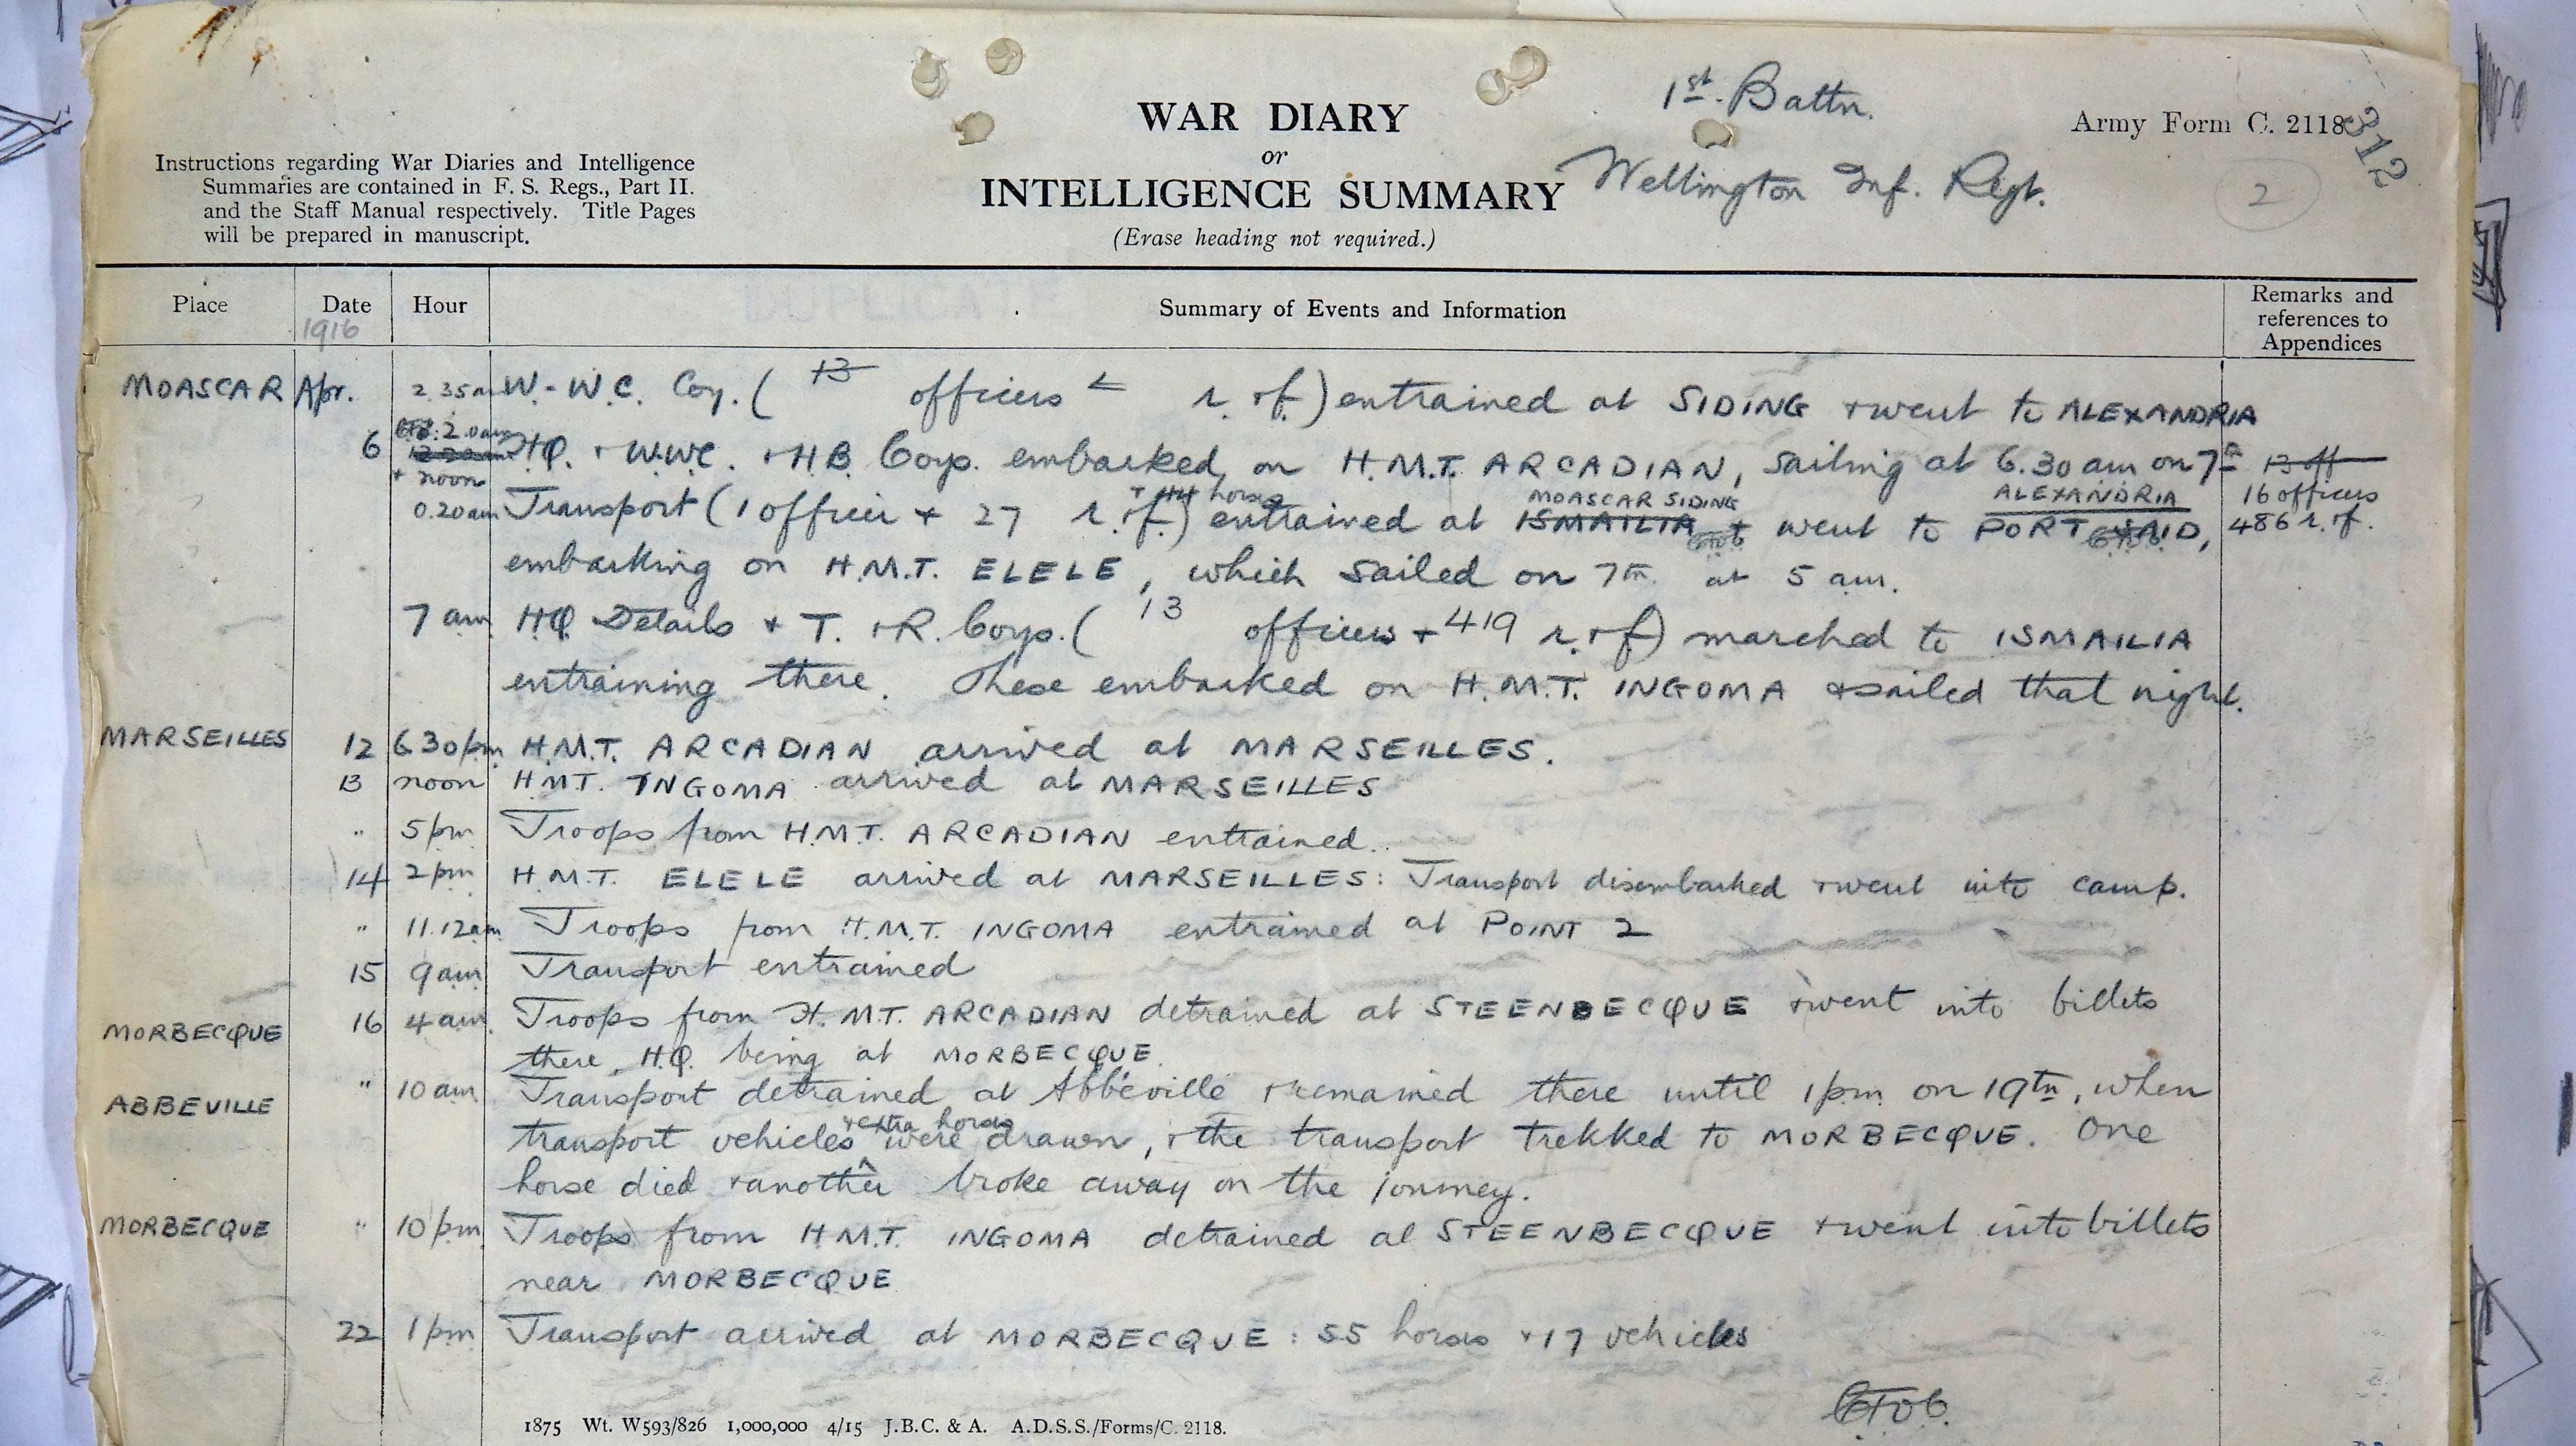 1st. Battn.
WAR DIARY
Army Form C. 2118
312
or
Instructions regarding War Diaries and Intelligence
Summaries are contained in F. S. Regs., Part II.
and the Staff Manual respectively. Title Pages
will be prepared in manuscript.
INTELLIGENCE SUMMARY
Wellington Inf. Regt.
2
(Erase heading not required.)
Place Date Hour Summary of Events and Information Remarks and references to Appendices
1916
MOASCAR Apr. 2.35am W.-W.C. Coy. ( 13 officers r. & f.) entrained at SIDING & went to ALEXANDRIA
6 2.0am HQ. & W.WC. & H.B. Coys. embarked on H.M.T. ARCADIAN, sailing at 6.30 am on 7th 13 off
+ noon
+ 44 horses MOASCAR SIDING ALEXANDRIA 16 officers
0.20am Transport (1 officer + 27 r. & f.) entrained at ISMAILIA & went to PORT SAID, 486 r. & f.
embarking on H.M.T. ELELE, which sailed on 7th at 5 am.
7 am HQ Details & T. & R. Coys. ( 13 officers + 419 r. & f) marched to ISMAILIA
entraining there. These embarked on H.M.T. INGOMA & sailed that night.
MARSEILLES 12 6 30pm H.M.T. ARCADIAN arrived at MARSEILLES.
13 noon H.M.T. INGOMA arrived at MARSEILLES
" 5pm Troops from H.M.T. ARCADIAN entrained.
14 2pm H.M.T. ELELE arrived at MARSEILLES: Transport disembarked & went into camp.
" 11.12am Troops from H.M.T. INGOMA entrained at POINT 2
15 9am Transport entrained
MORBECQUE 16 4am Troops from H.M.T. ARCADIAN detrained at STEENBECQUE & went into billets
there, H.Q. being at MORBECQUE.
ABBEVILLE " 10am Transport detrained at Abbéville & remained there until 1pm on 19th, when
& extra horses
transport vehicles were drawn, & the transport trekked to MORBECQUE. One
horse died & another broke away on the journey.
MORBECQUE " 10pm Troops from H.M.T. INGOMA detrained at STEENBECQUE & went into billets
near MORBECQUE
22 1pm Transport arrived at MORBECQUE: 55 horses & 17 vehicles
1875 Wt. W593/826 1,000,000 4/15 J.B.C. & A. A.D.S.S./Forms/C. 2118.